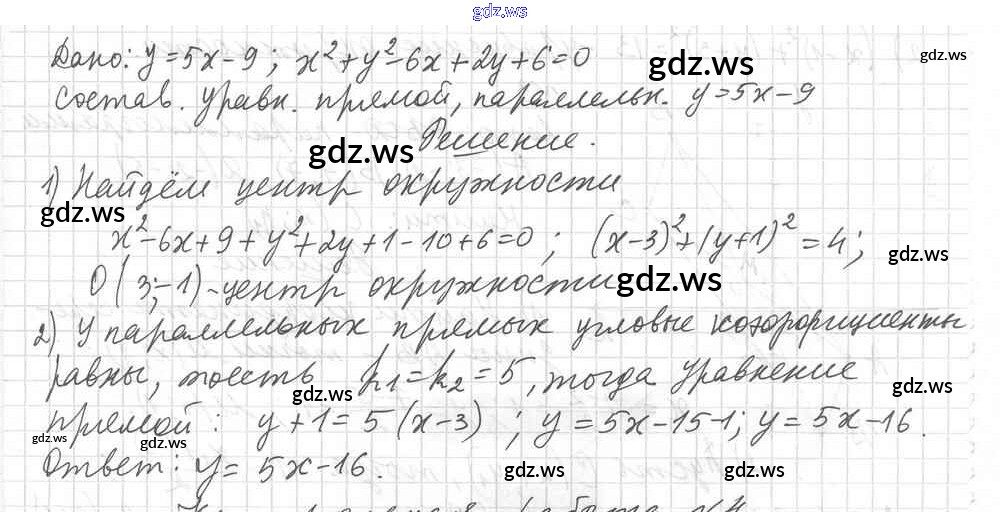 gdz.ws
Дано: y=5x-9; x²+y²-6x+2y+6=0
gdz.ws
gdz.ws
Состав. уравн. прямой, параллельн. y=5x-9
Решение.
gdz.ws
1) Найдём центр окружности
gdz.ws
x²-6x+9+y²+2y+1-10+6=0; (x-3)²+(y+1)²=4;
gdz.ws
O(3;-1)-центр окружности
gdz.ws
2) У параллельных прямых угловые коэффициенты
равны, тоесть k₁=k₂=5, тогда уравнение
gdz.ws
gdz.ws
прямой: y+1=5(x-3); y=5x-15-1; y=5x-16.
gdz.ws
gdz.ws
Ответ: y=5x-16.
gdz.ws
gdz.ws